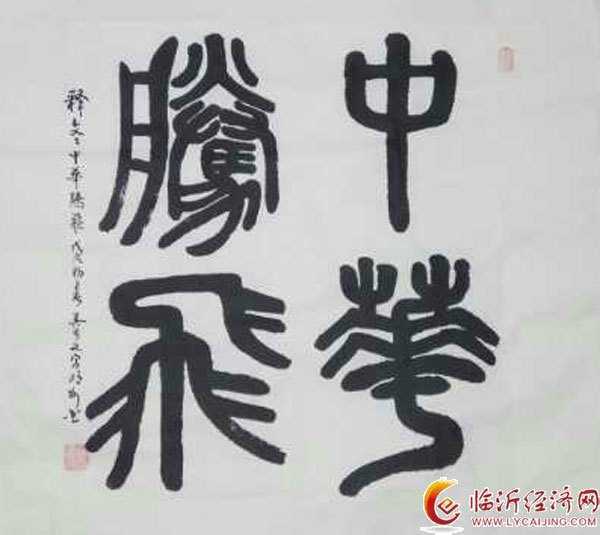 中華
騰飛
釋文 中華騰飛 戊戌初春
临沂经济网
WWW.LYCAIJING.COM